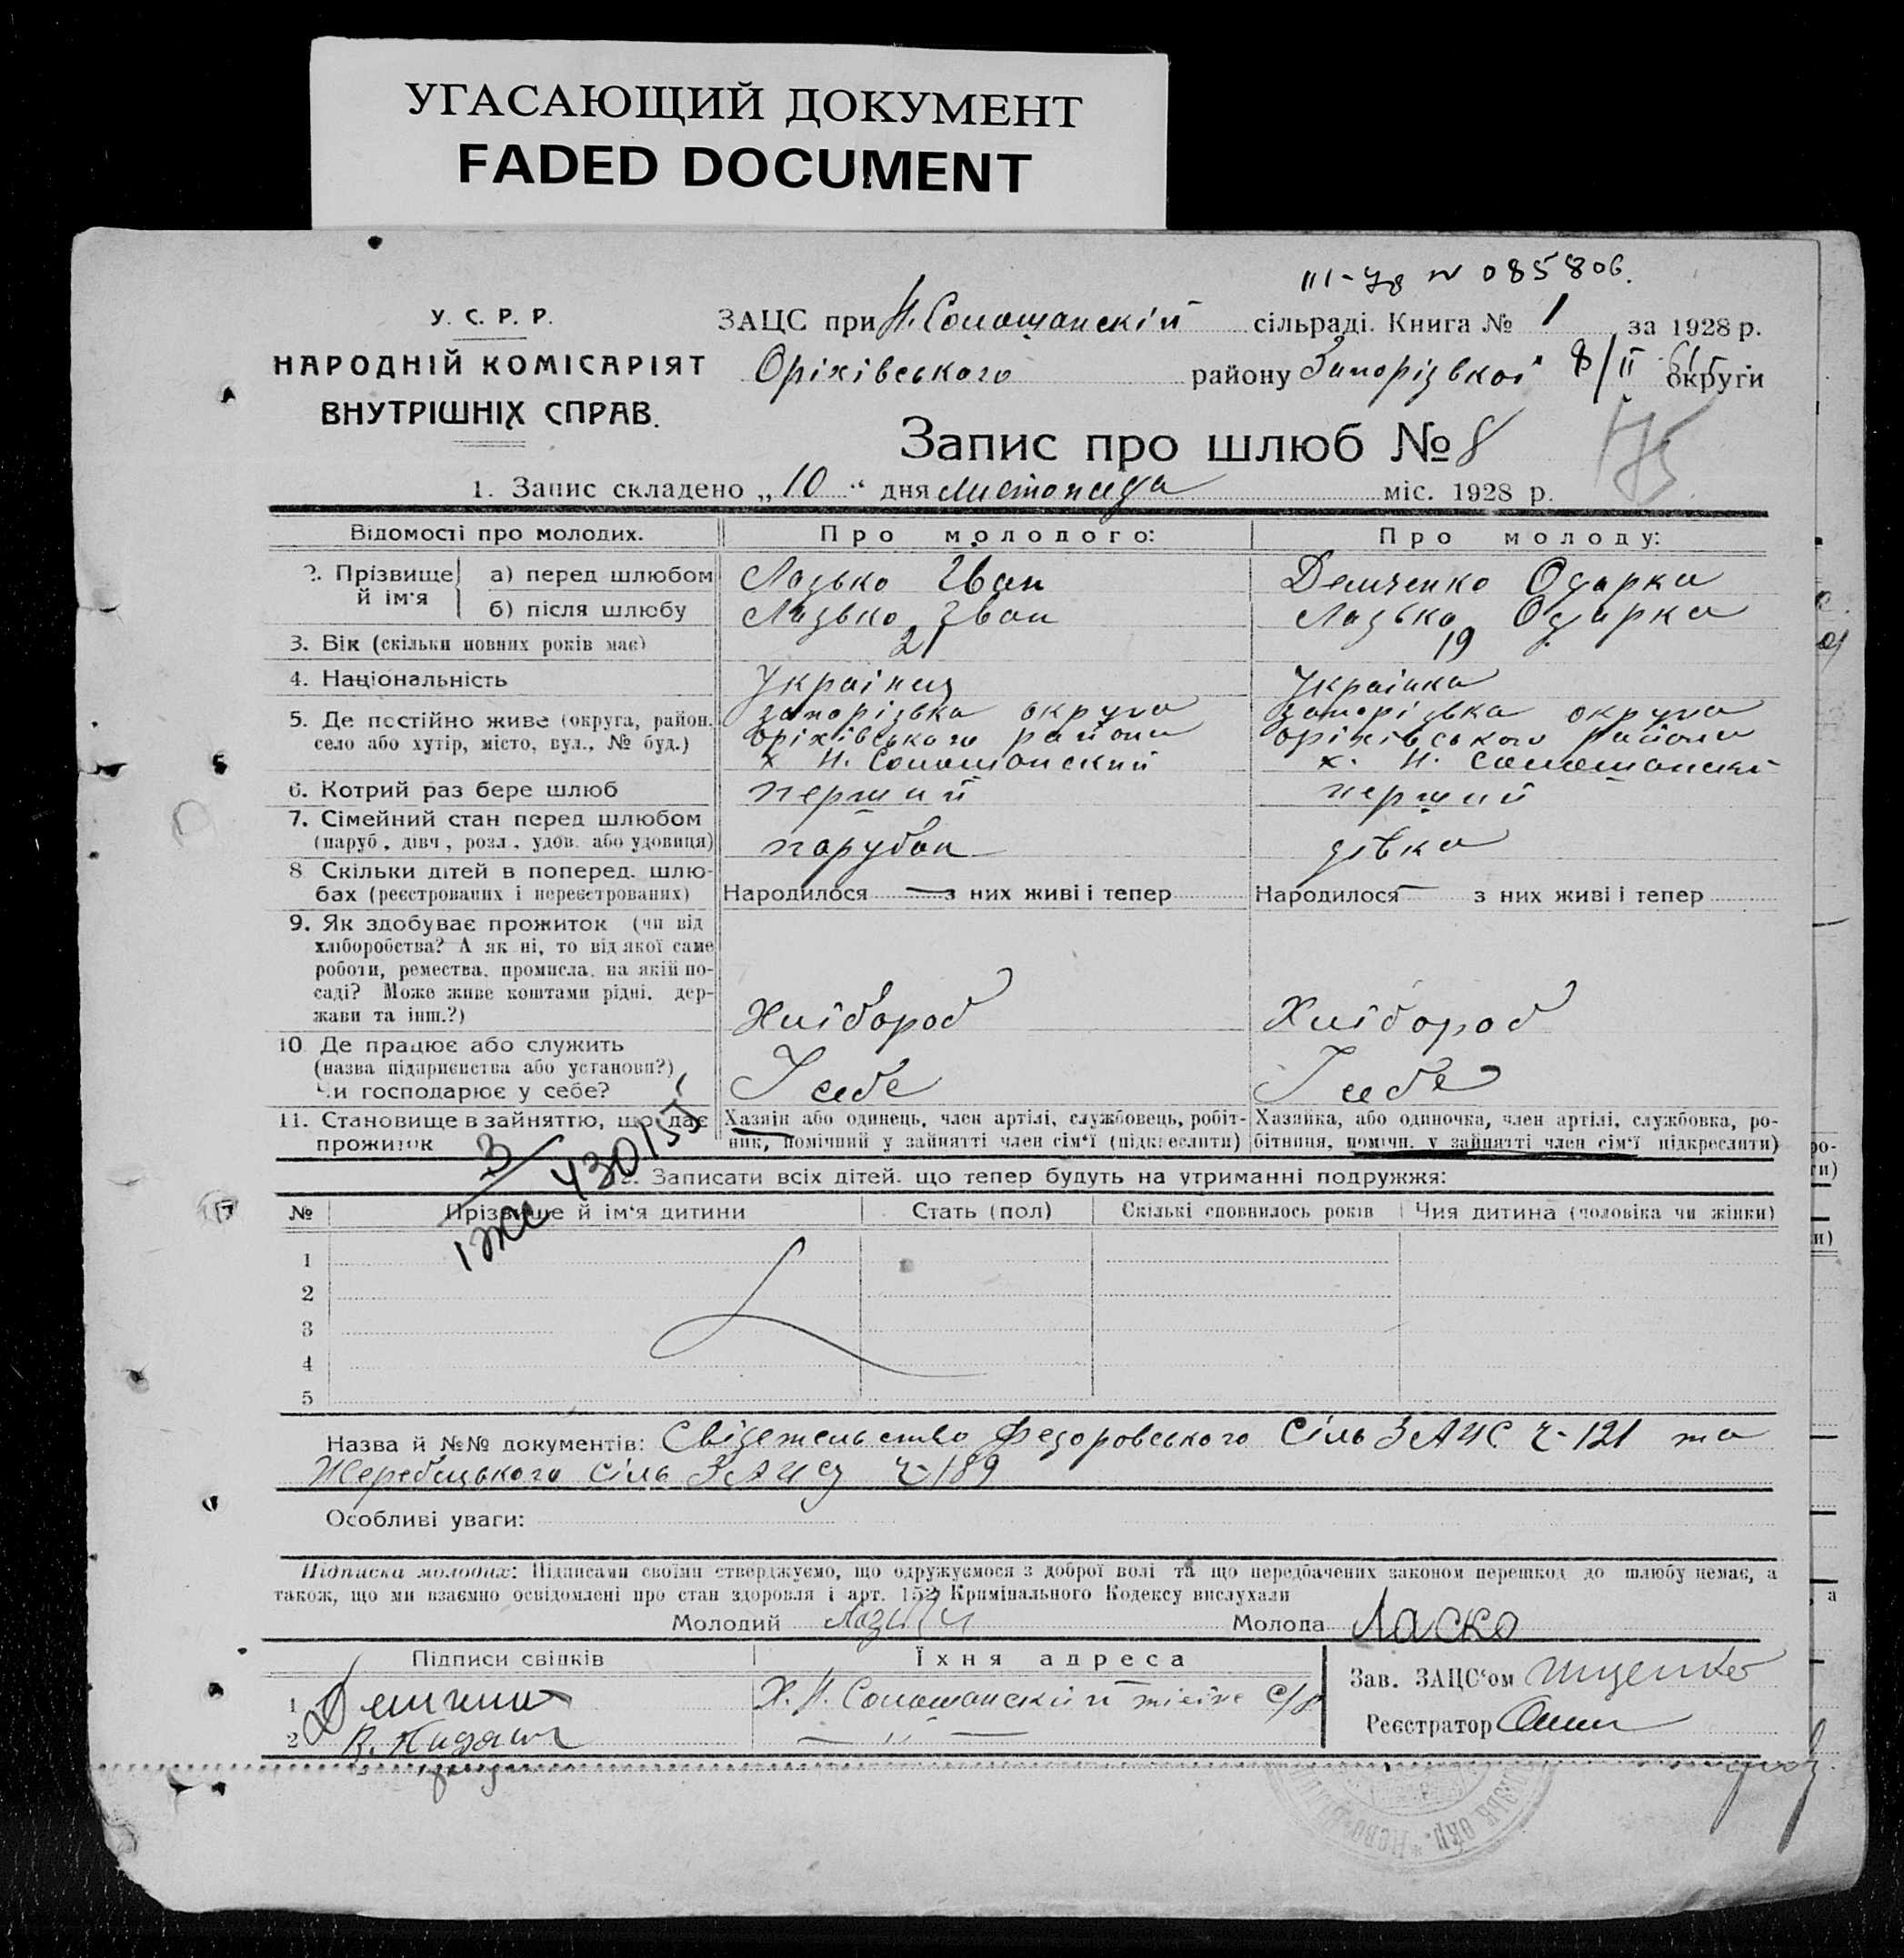 УГАСАЮЩИЙ ДОКУМЕНТ
FADED DOCUMENT
III-ЖВ N 085806.
У. С. Р. Р.
НАРОДНІЙ КОМІСАРІЯТ
ВНУТРІШНІХ СПРАВ.
ЗАЦС при Н. Соложанскій сільраді. Книга № 1 за 1928 р.
Оріхівського району Запорізької округи
8/II
Запис про шлюб № 8
175
1. Запис складено „10“ дня листопада міс. 1928 р.
Відомості про молодих.
Про молодого:
Про молоду:
2. Прізвище й ім'я
а) перед шлюбом
Лазько Іван
Демченко Одарка
б) після шлюбу
Лазько Іван
Лазько Одарка
3. Вік (скільки повних років має)
21
19
4. Національність
Українец
Українка
5. Де постійно живе (округа, район, село або хутір, місто, вул., № буд.)
запорізька округа
оріхівського района
х Н.
запорізька округа
оріхівського района
х. Н.
6. Котрий раз бере шлюб
перший
перший
7. Сімейний стан перед шлюбом
(паруб, дівч, розл, удов. або удовиця)
парубок
дівка
8 Скільки дітей в поперед. шлюбах (реєстрованих і нереєстрованих)
Народилося — з них живі і тепер
Народилося — з них живі і тепер
9. Як здобуває прожиток (чи від
хліборобства? А як ні, то від якої саме
роботи, ремества, промисла, на якій по-
саді? Може живе коштами рідні, дер-
жави та інш.?)
Хлібороб
Хлібороб
10 Де працює або служить
(назва підприємства або установи?)
Чи господарює у себе?
У себе
У себе
11. Становище в зайняттю, що дає
прожиток
Хазяїн або одинець, член артілі, службовець, робіт-
ник, помічний у зайнятті член сім'ї (підкреслити)
Хазяйка, або одиночка, член артілі, службовка, ро-
бітниця, помічн. у зайнятті член сім'ї підкреслити)
12. Записати всіх дітей, що тепер будуть на утриманні подружжя:
№ Прізвище й ім'я дитини Стать (пол) Скількі сповнилось років Чия дитина (чоловіка чи жінки)
1
2
3
4
5
Назва й №№ документів: Свідетельство Федоровського Сіль ЗАЦС ч-121 та
Жеребецького Сіль ЗАЦС ч-189
Особливі уваги:
Підписка молодих: Підписами своїми стверджуємо, що одружуємося з доброї волі та що передбачених законом перешкод до шлюбу немає, а
також, що ми взаємно освідомлені про стан здоровля і арт. 152 Кримінального Кодексу вислухали
Молодий Молода Ласко
Підписи свідків
Їхня адреса
1
2
Зав. ЗАЦС'ом
Реєстратор